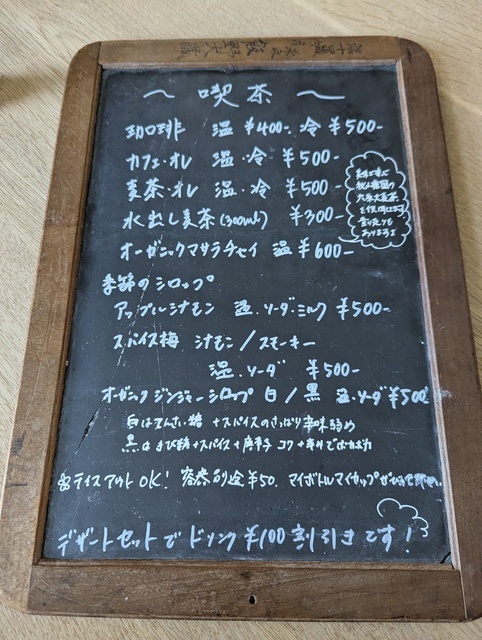 〜 喫茶 〜
珈琲 温 ¥400- 冷 ¥500-
カフェ・オレ 温・冷 ¥500-
麦茶・オレ 温・冷 ¥500-
水出し麦茶(300ml) ¥300-
オーガニックマサラチャイ 温 ¥600-
季節のシロップ
アップルシナモン 温・ソーダ・ミルク ¥500-
スパイス梅 シナモン/スモーキー
温・ソーダ ¥500-
オーガニックジンジャーシロップ 白/黒 温・ソーダ ¥500-
白はてんさい糖+スパイスのさっぱり辛味強め
黒はきび糖+スパイス+唐辛子 コク+辛み
テイクアウトOK! 容器別途¥50. マイボトルマイカップ
デザートセットでドリンク¥100割引きです!